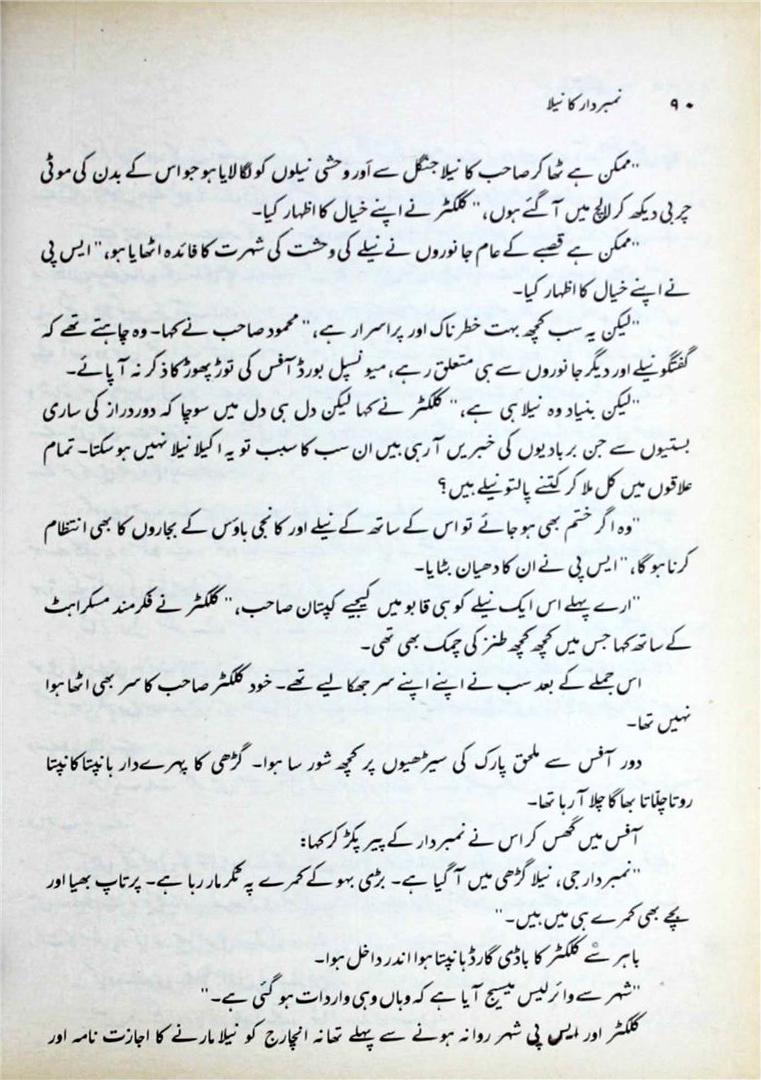 ۹۰ نمبردار کا نیلا
"ممکن ہے ٹھاکر صاحب کا نیلا جنگل سے اَور وحشی نیلوں کو لگا لایا ہو جو اس کے بدن کی موٹی
چربی دیکھ کر لالچ میں آگئے ہوں،" کلکٹر نے اپنے خیال کا اظہار کیا۔
"ممکن ہے قصبے کے عام جانوروں نے نیلے کی وحشت کی شہرت کا فائدہ اٹھایا ہو،" ایس پی
نے اپنے خیال کا اظہار کیا۔
"لیکن یہ سب کچھ بہت خطرناک اور پراسرار ہے،" محمود صاحب نے کہا۔ وہ چاہتے تھے کہ
گفتگو نیلے اور دیگر جانوروں سے ہی متعلق رہے، میونسپل بورڈ آفس کی توڑ پھوڑ کا ذکر نہ آپائے۔
"لیکن بنیاد وہ نیلا ہی ہے،" کلکٹر نے کہا لیکن دل ہی دل میں سوچا کہ دوردراز کی ساری
بستیوں سے جن بربادیوں کی خبریں آرہی ہیں ان سب کا سبب تو یہ اکیلا نیلا نہیں ہوسکتا۔ تمام
علاقوں میں کل ملا کر کتنے پالتو نیلے ہیں؟
"وہ اگر ختم بھی ہوجائے تو اس کے ساتھ کے نیلے اور کانجی ہاؤس کے بجاروں کا بھی انتظام
کرنا ہوگا،" ایس پی نے ان کا دھیان بٹایا۔
"ارے پہلے اس ایک نیلے کو ہی قابو میں کیجیے کپتان صاحب،" کلکٹر نے فکرمند مسکراہٹ
کے ساتھ کہا جس میں کچھ کچھ طنز کی چمک بھی تھی۔
اس جملے کے بعد سب نے اپنے اپنے سر جھکا لیے تھے۔ خود کلکٹر صاحب کا سر بھی اٹھا ہوا
نہیں تھا۔
دور آفس سے ملحق پارک کی سیڑھیوں پر کچھ شور سا ہوا۔ گڑھی کا پہرےدار ہانپتا کانپتا
روتا چلّاتا بھاگا چلا آرہا تھا۔
آفس میں گھس کر اس نے نمبردار کے پیر پکڑ کر کہا:
"نمبردار جی، نیلا گڑھی میں آگیا ہے۔ بڑی بہو کے کمرے پہ ٹکر مار رہا ہے۔ پرتاپ بھیا اور
بچے بھی کمرے ہی میں ہیں۔"
باہر سے کلکٹر کا باڈی گارڈ ہانپتا ہوا اندر داخل ہوا۔
"شہر سے وائرلیس میسج آیا ہے کہ وہاں وہی واردات ہوگئی ہے۔"
کلکٹر اور ایس پی شہر روانہ ہونے سے پہلے تھانہ انچارج کو نیلا مارنے کا اجازت نامہ اور